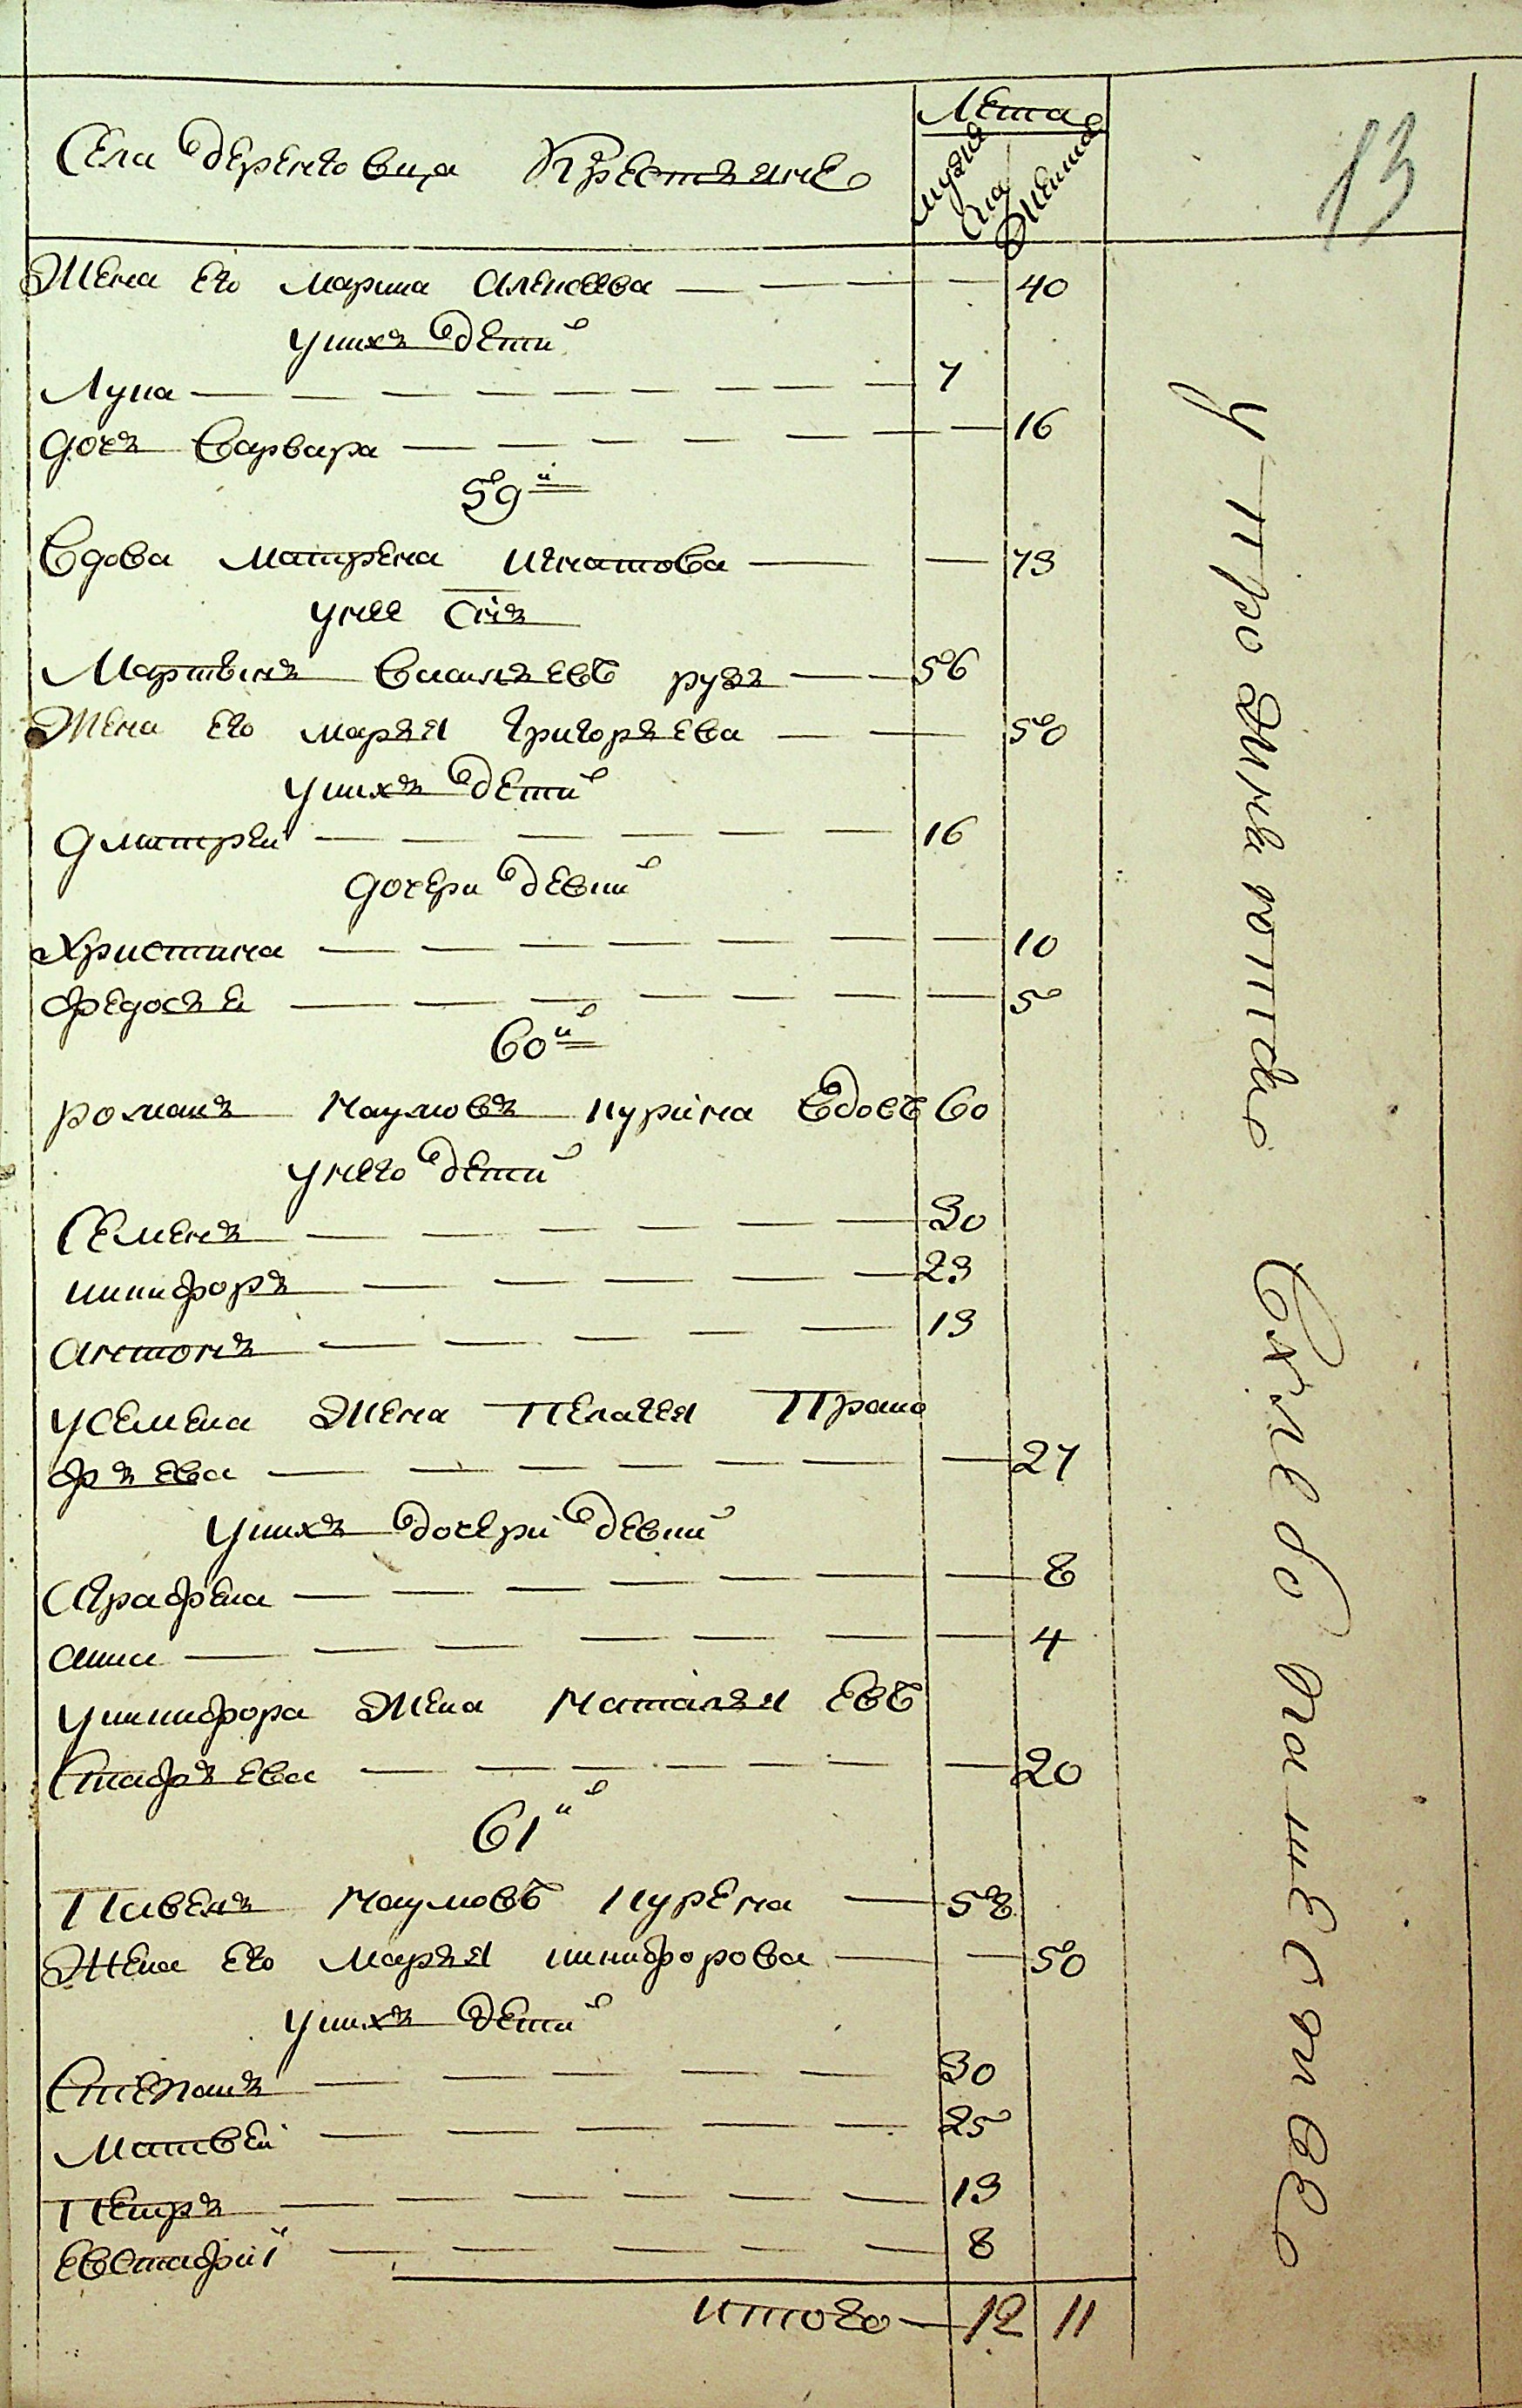 Села Деренговца Крестъяне
Лета
мужеска
женска
13
Жена его марина Алексеева 40
уних детей
Лука 7
дочъ Варвара 16
59й
Вдова матрена игнатова 73
унее Снъ
Мартынъ Василъевъ рузъ 56
Жена его маръя григоръева 50
унихъ детей
дмитрей 16
дочери девки
Христина 10
федосъя 5
60й
романъ Наумовъ курина вдовъ 60
унего детей
Семенъ 30
никифоръ 23
антонъ 13
усемена Жена Пелагея Проко
фъева 27
унихъ дочери девки
Аграфена 8
анна 4
уникифора Жена Наталъя Евъ
стафъева 20
61й
Павелъ Наумовъ курена 58
Жена его маръя никифорова 50
унихъ детей
Степанъ 30
матвей 25
Петръ 13
евстафий 8
итого 12 11